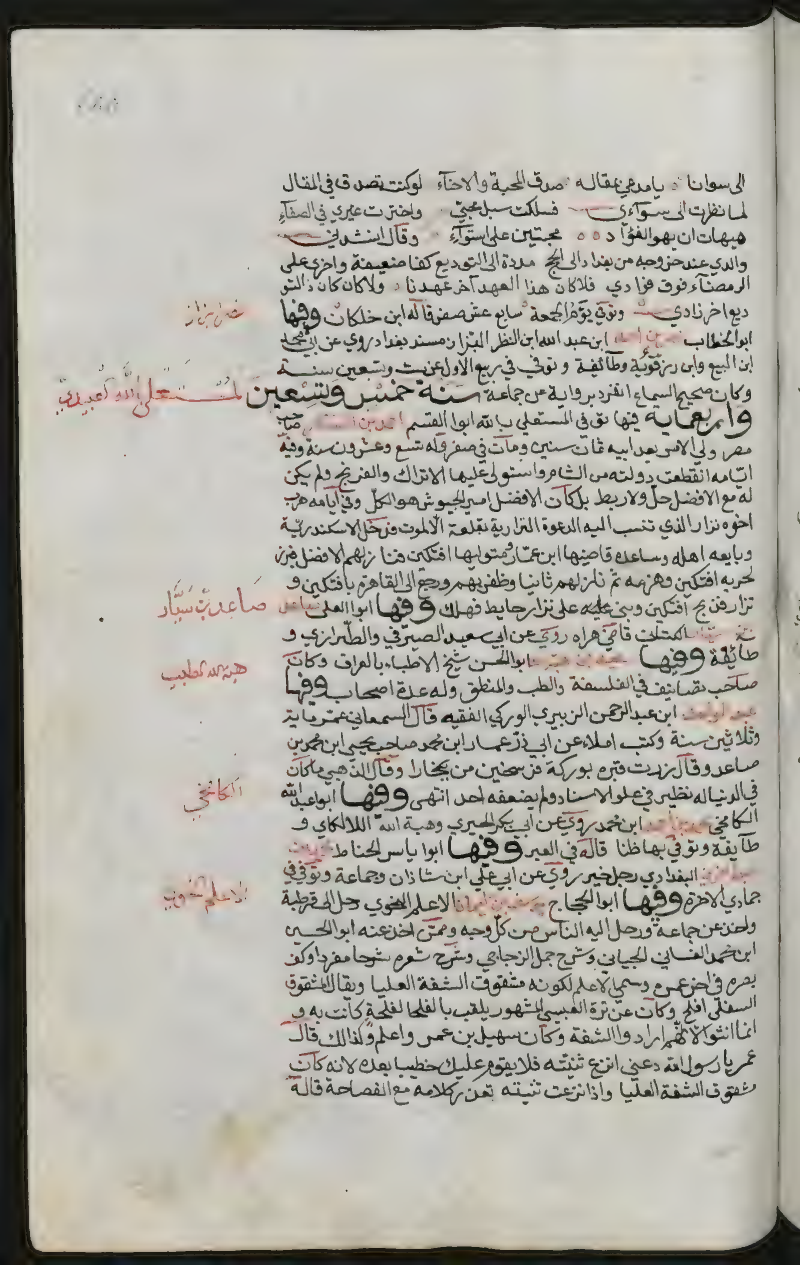 الى سوانا يا مدعي بمقاله صدق المحبة والاخآء لو كنت تصدق في المقال
لما نظرت الى سوآءي فسلكت سبل محبتي واخترت غيري في الصفآء
هيهات ان يهوالفؤاد محبتين على استوآء وقال انشدني
والدي عند خروجه من بغداد الى الحج مددة الى التوديع كفا ضعيفة واخرى على
الرمضآء فوق فؤادي فلا كان هذا العهد آخر عهدنا ولا كان كان ذا التو
ديع اخر زادي وتوفي يوم الجمعة سابع عشر صفر قاله ابن خلكان وفيها
نصر بن بزار
ابو الخطاب نصر بن احمد ابن عبد الله ابن النظر البزار مسند بغداد روي عن ابي محمد
ابن البيع وابن رزقوية وطائفة وتوفي في ربيع الاول عن ست وتسعين سنة
وكان صحيح السماع انفرد برواية عن جماعة سنة خمس وتسعين
المستعلي بالله العبيدي
واربعماية فيها توفي المستعلي بالله ابو القسم احمد بن المستنصر صاحب
مصر ولي الامر بعد ابيه ثمان سنين ومات في صفر وله تسع وعشرون سنة وفي
ايامه انقطعت دولته من الشام واستولى عليها الاتراك والفرنج ولم يكن
له مع الافضل حل ولا ربط بل كان الافضل امير الجيوش هو الكل وفي ايامه هرب
اخوه نزار الذي تنسب اليه الدعوة النزارية بقلعة الالموت فدخل الاسكندرية
وبايعه اهله وساعده قاضيها ابن عمار ومتوليها افتكين فنازلهم الافضل فبرز
لحربه افتكين وهزمه ثم نازلهم ثانيا وظفر بهم ورجع الى القاهرة بافتكين و
نزار فذبح افتكين وبنى عليه على نزار حايط فهلك وفيها ابو العلى صاعد
صاعد بن سيار
بن سيار الكناني قاضي هراه روي عن ابي سعيد الصيرفي والطرازي و
طائفة وفيها سعيد بن هبة الله ابو الحسن شيخ الاطباء بالعراق وكان
هبة الله الطبيب
صاحب تصانيف في الفلسفة والطب والمنطق وله عدة اصحاب وفيها
عبد الواحد ابن عبد الرحمن الزبيري الوركي الفقيه قال السمعاني عمر ماية
وثلاثين سنة وكتب املاء عن ابي ذر عمار ابن محمد صاحب يحيى ابن محمد بن
صاعد وقال زرت قبره بوركة فرسخين من بخارا وقال الذهبي ما كان
في الدنيا له نظير في علو الاسناد ولم يضعفه احد انتهى وفيها ابو عبد الله
الكامخي
الكامخي محمد بن احمد ابن محمد روي عن ابي بكر الحيري وهبة الله اللالكاي و
طايفة وتوفي بها ظنا قاله في العبر وفيها ابو ياسر الحناط محمد بن
عبد العزيز البغدادي رجل خير روي عن ابي علي ابن شاذان وجماعة وتوفي في
جمادي الاخرة وفيها ابو الحجاج يوسف بن سليمان الاعلم النحوي رحل الى قرطبة
الاعلم النحوي
واخذ عن جماعة ورحل اليه الناس من كل وجه وممن اخذ عنه ابو الحسين
ابن محمد الغساني الجياني وشرح جمل الزجاجي وشرح شعره شرحا مفردا وكف
بصره في اخر عمره وسمي الاعلم لكونه مشقوق الشفة العليا ويقال للشقوق
السفلى افلح وكان عنترة العبسي المشهور يلقب بالفلحا لفلحة كانت به و
انما انثوا لانهم ارادوا الشفة وكان سهيل بن عمر واعلم وكذالك قال
عمر يا رسول الله دعني انزع ثنيته فلا يقوم عليك خطيبا بعده لانه كان
مشقوق الشفة العليا واذا نزعت ثنيته تعذر كلامه مع الفصاحة قاله